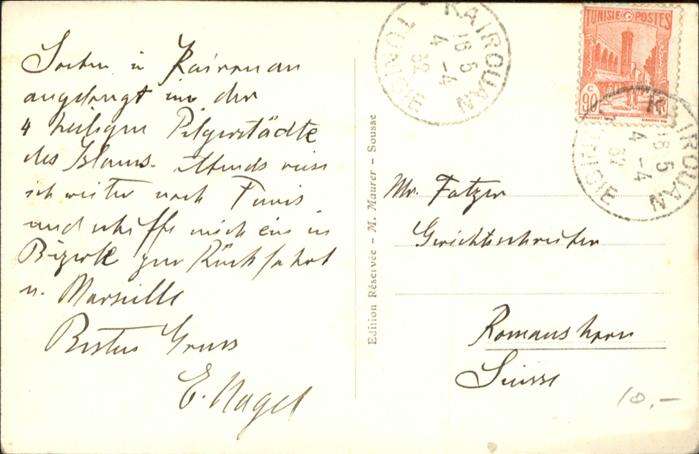 Soeben in Kairouan
angelangt einer der
4 heiligen Pilgerstädte
des Islams. Abends reise
ich weiter nach Tunis
und schiffe mich ein in
Bizerte zur Rückfahrt
n. Marseille
Besten Gruss
E. Nagel
Edition Réservée - M. Maurer - Sousse
TUNISIE POSTES
90 c
KAIROUAN
18 5
4 -4
32
TUNISIE
KAIROUAN
18 5
4 -4
32
TUNISIE
Mr. Fatzer
Gerichtsschreiber
Romanshorn
Suisse
10.-